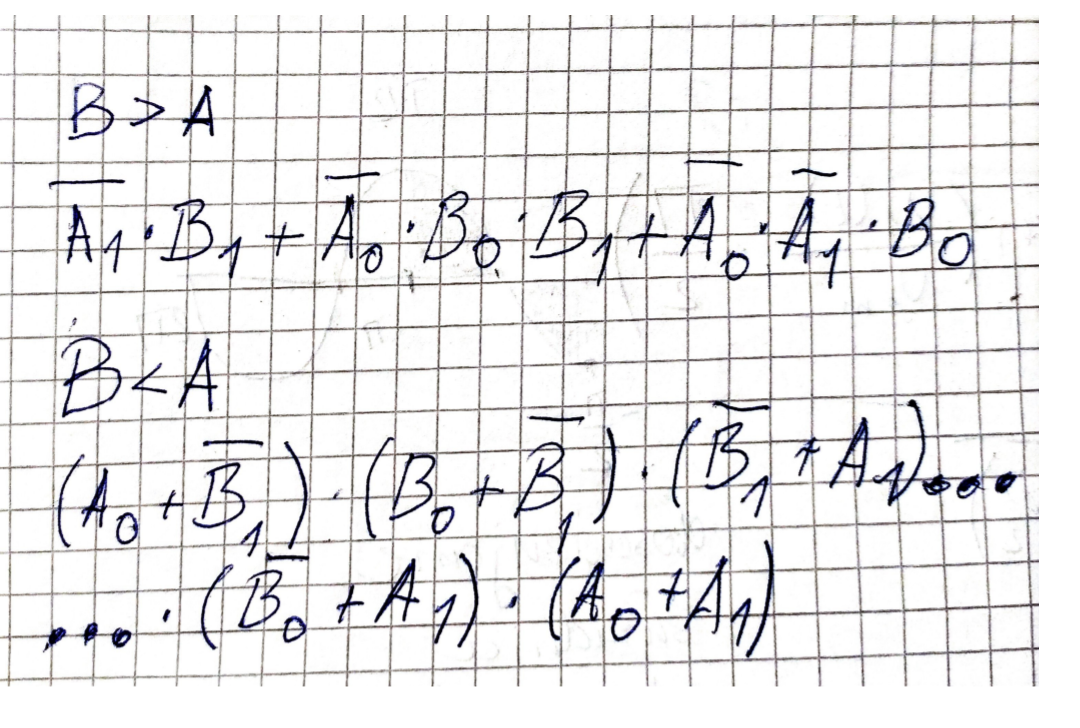 B > A
A̅₁·B₁ + A̅₀·B₀·B₁ + A̅₀·A̅₁·B₀
B < A
(A₀ + B̅₁)·(B₀ + B̅₁)·(B̅₁ + A₁)...
...·(B̅₀ + A₁)·(A₀ + A₁)